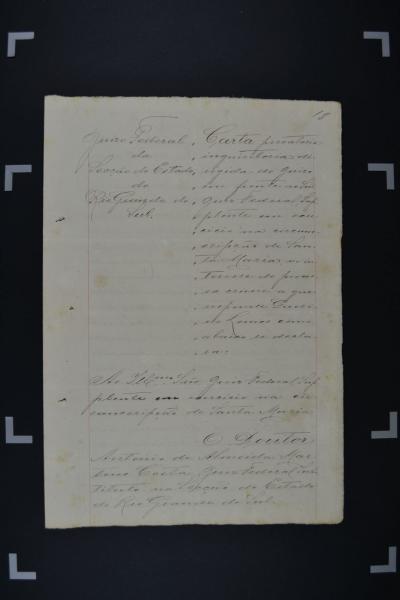 18
Juizo Federal
da
Secção do Estado
do
Rio Grande do
Sul.
Carta precatoria
inquiritoria di-
rigida do Juizo
Juiz Federal Sup-
plente em exer-
cicio na circum-
scripção de San-
ta Maria, no in-
teresse do proces-
so crime a que
responde
de Lemos como
abaixo se decla-
ra:
Ao Illmo Snr Juiz Federal Sup-
plente em exercicio na cir-
cumscripção de Santa Maria
O Doutor
Antonio de Almeida Mar-
Costa, Juiz Federal subs-
tituto na Secção do Estado
do Rio Grande do Sul.